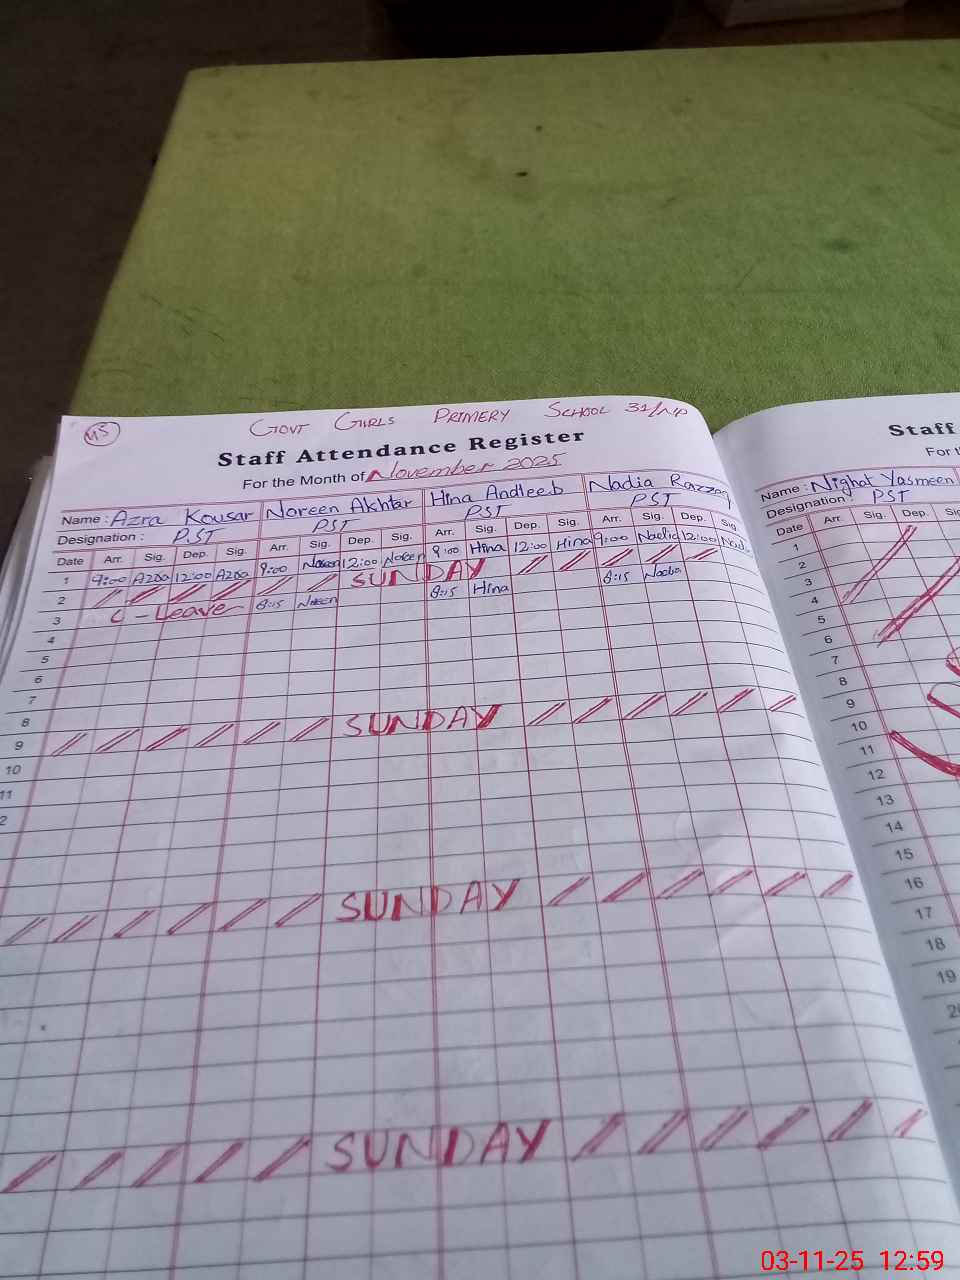 MS
GOVT GIRLS PRIMERY SCHOOL 31/NP
Staff Attendance Register
For the Month of November 2025
Name : Azra Kousar Noreen Akhtar Hina Andleeb Nadia Razzaq
Designation : PST PST PST PST
Date Arr. Sig. Dep. Sig. Arr. Sig. Dep. Sig. Arr. Sig. Dep. Sig. Arr. Sig. Dep. Sig.
1 9:00 Azra 12:00 Azra 9:00 Noreen 12:00 Noreen 9:00 Hina 12:00 Hina 9:00 Nadia 12:00 Nadia
2 SUNDAY
3 C-Leave 8:15 Noreen 8:15 Hina 8:15 Nadia
4
5
6
7
8
9 SUNDAY
10
11
2
SUNDAY
SUNDAY
Staff
For t
Name : Nighat Yasmeen
Designation : PST
Date Arr. Sig. Dep. Sig
1
2
3
4
5
6
7
8
9
10
11
12
13
14
15
16
17
18
19
03-11-25 12:59